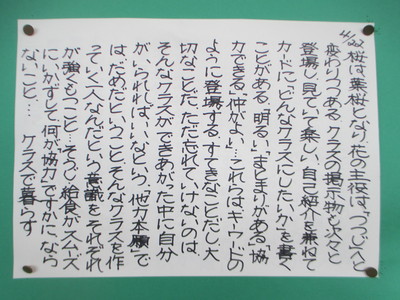 4/22 桜は葉桜となり、花の主役は、「つつじ」へと
変わりつつある。クラスの掲示物も次々と
登場し、見ていて楽しい。自己紹介を兼ねて
カードに、「どんなクラスにしたいか」を書く
ことがある。「明るい」「まとまりがある」「協
力できる」「仲がよい」…これらはキーワードの
ように登場する。すてきなことだし、大
切なことだ。ただ忘れていけないのは
そんなクラスができあがった中に自分
が、いられれば、いいなという、他力本願で
はだめだということ。そんなクラスを作
っていく一人なんだという意識をそれぞれ
が強くもつこと…そうじ、給食がスムーズ
にいかずして何が協力ですか、にならな
ないこと… クラスで暮らす